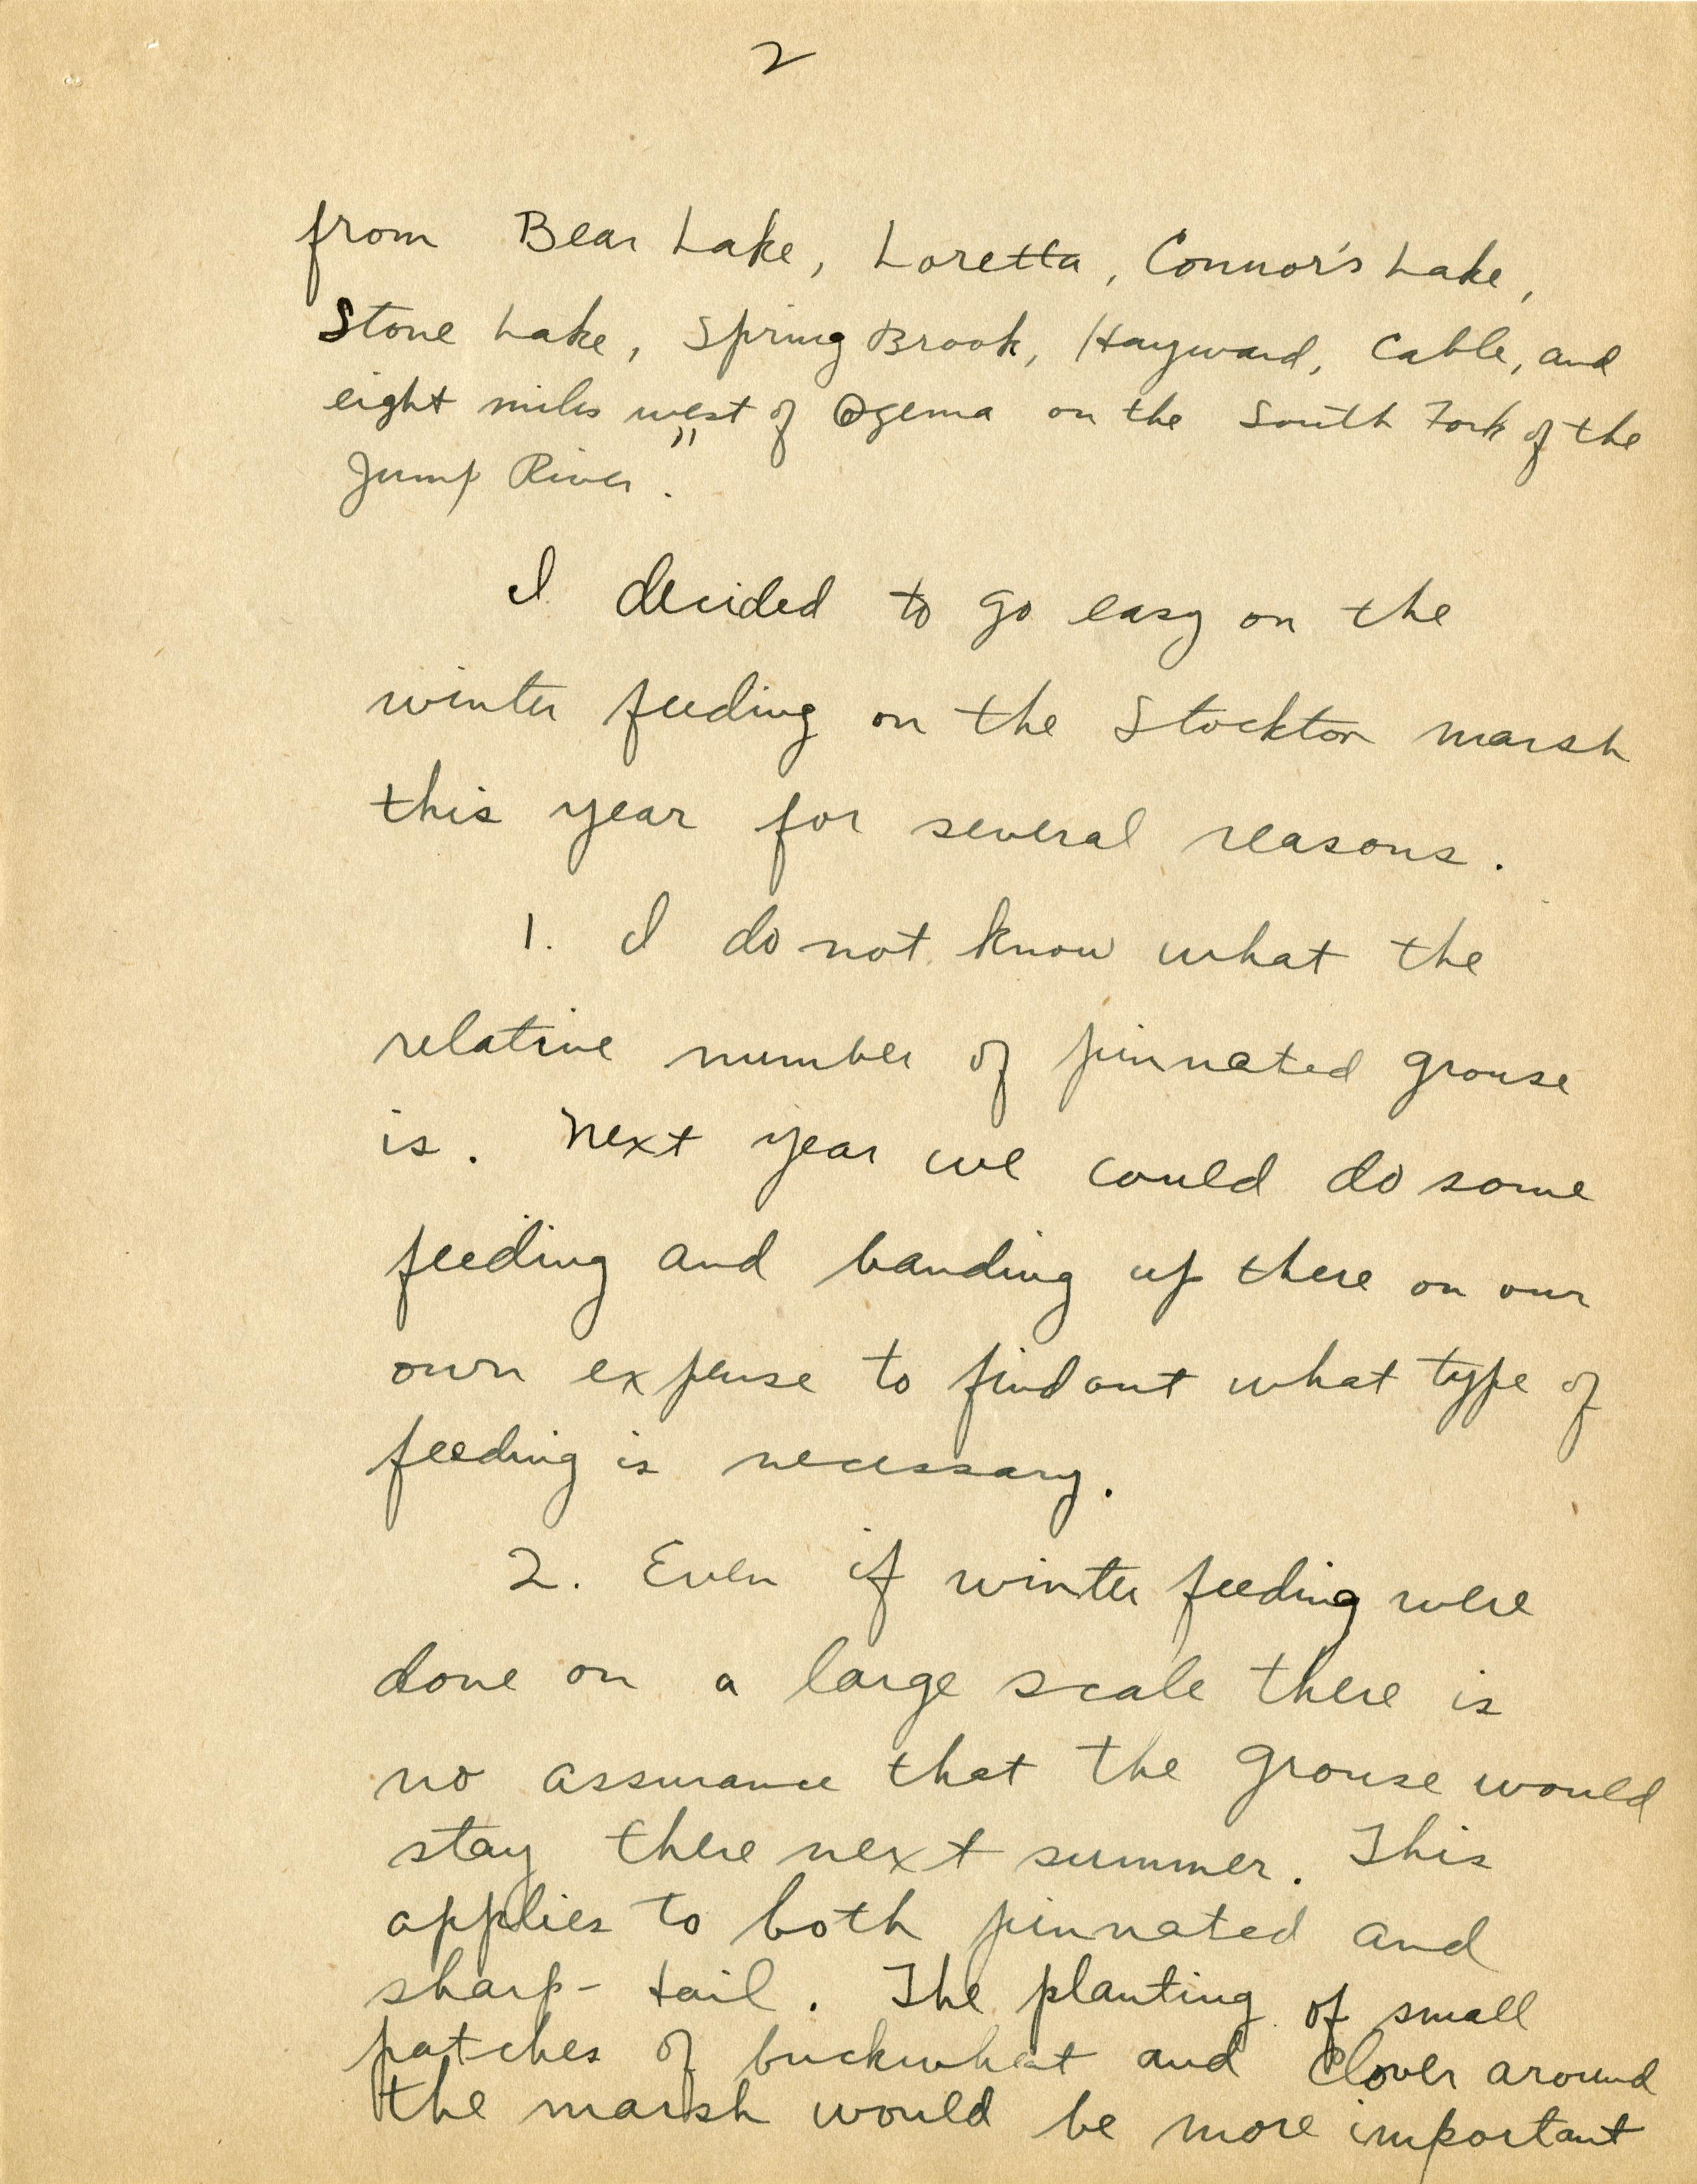 2
from Bear Lake, Loretta, Connor's Lake,
Stone Lake, Spring Brook, Hayward, Cable, and
eight miles west of Ogema on the South Fork of the
Jump River."
I decided to go easy on the
winter feeding on the Stockton marsh
this year for several reasons.
1. I do not know what the
relative number of pinnated grouse
is. Next year we could do some
feeding and banding up there on our
own expense to find out what type of
feeding is necessary.
2. Even if winter feeding were
done on a large scale there is
no assurance that the grouse would
stay there next summer. This
applies to both pinnated and
sharp-tail. The planting of small
patches of buckwheat and clover around
the marsh would be more important